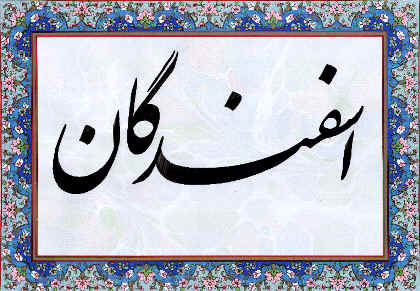 اسفندگان